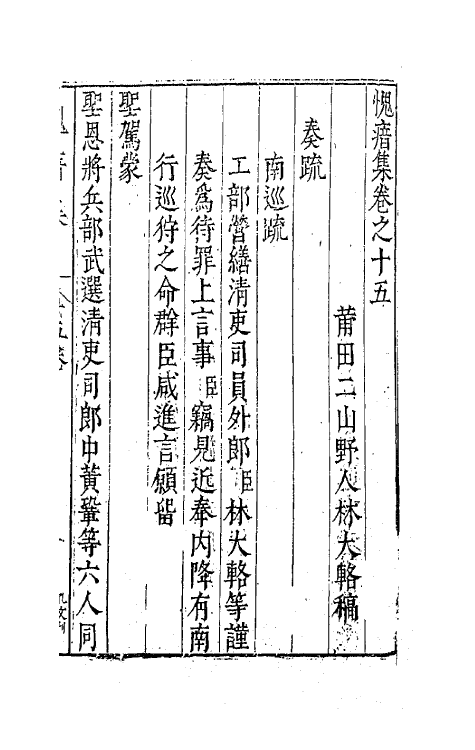 愧瘖集卷之十五
莆田二山野人林大輅稿
奏疏
南巡疏
工部營繕清吏司員外郎臣林大輅等謹
奏爲待罪上言事臣竊見近奉內降有南
行巡狩之命群臣咸進言願畱
聖駕蒙
聖恩將兵部武選清吏司郎中黃鞏等六人同